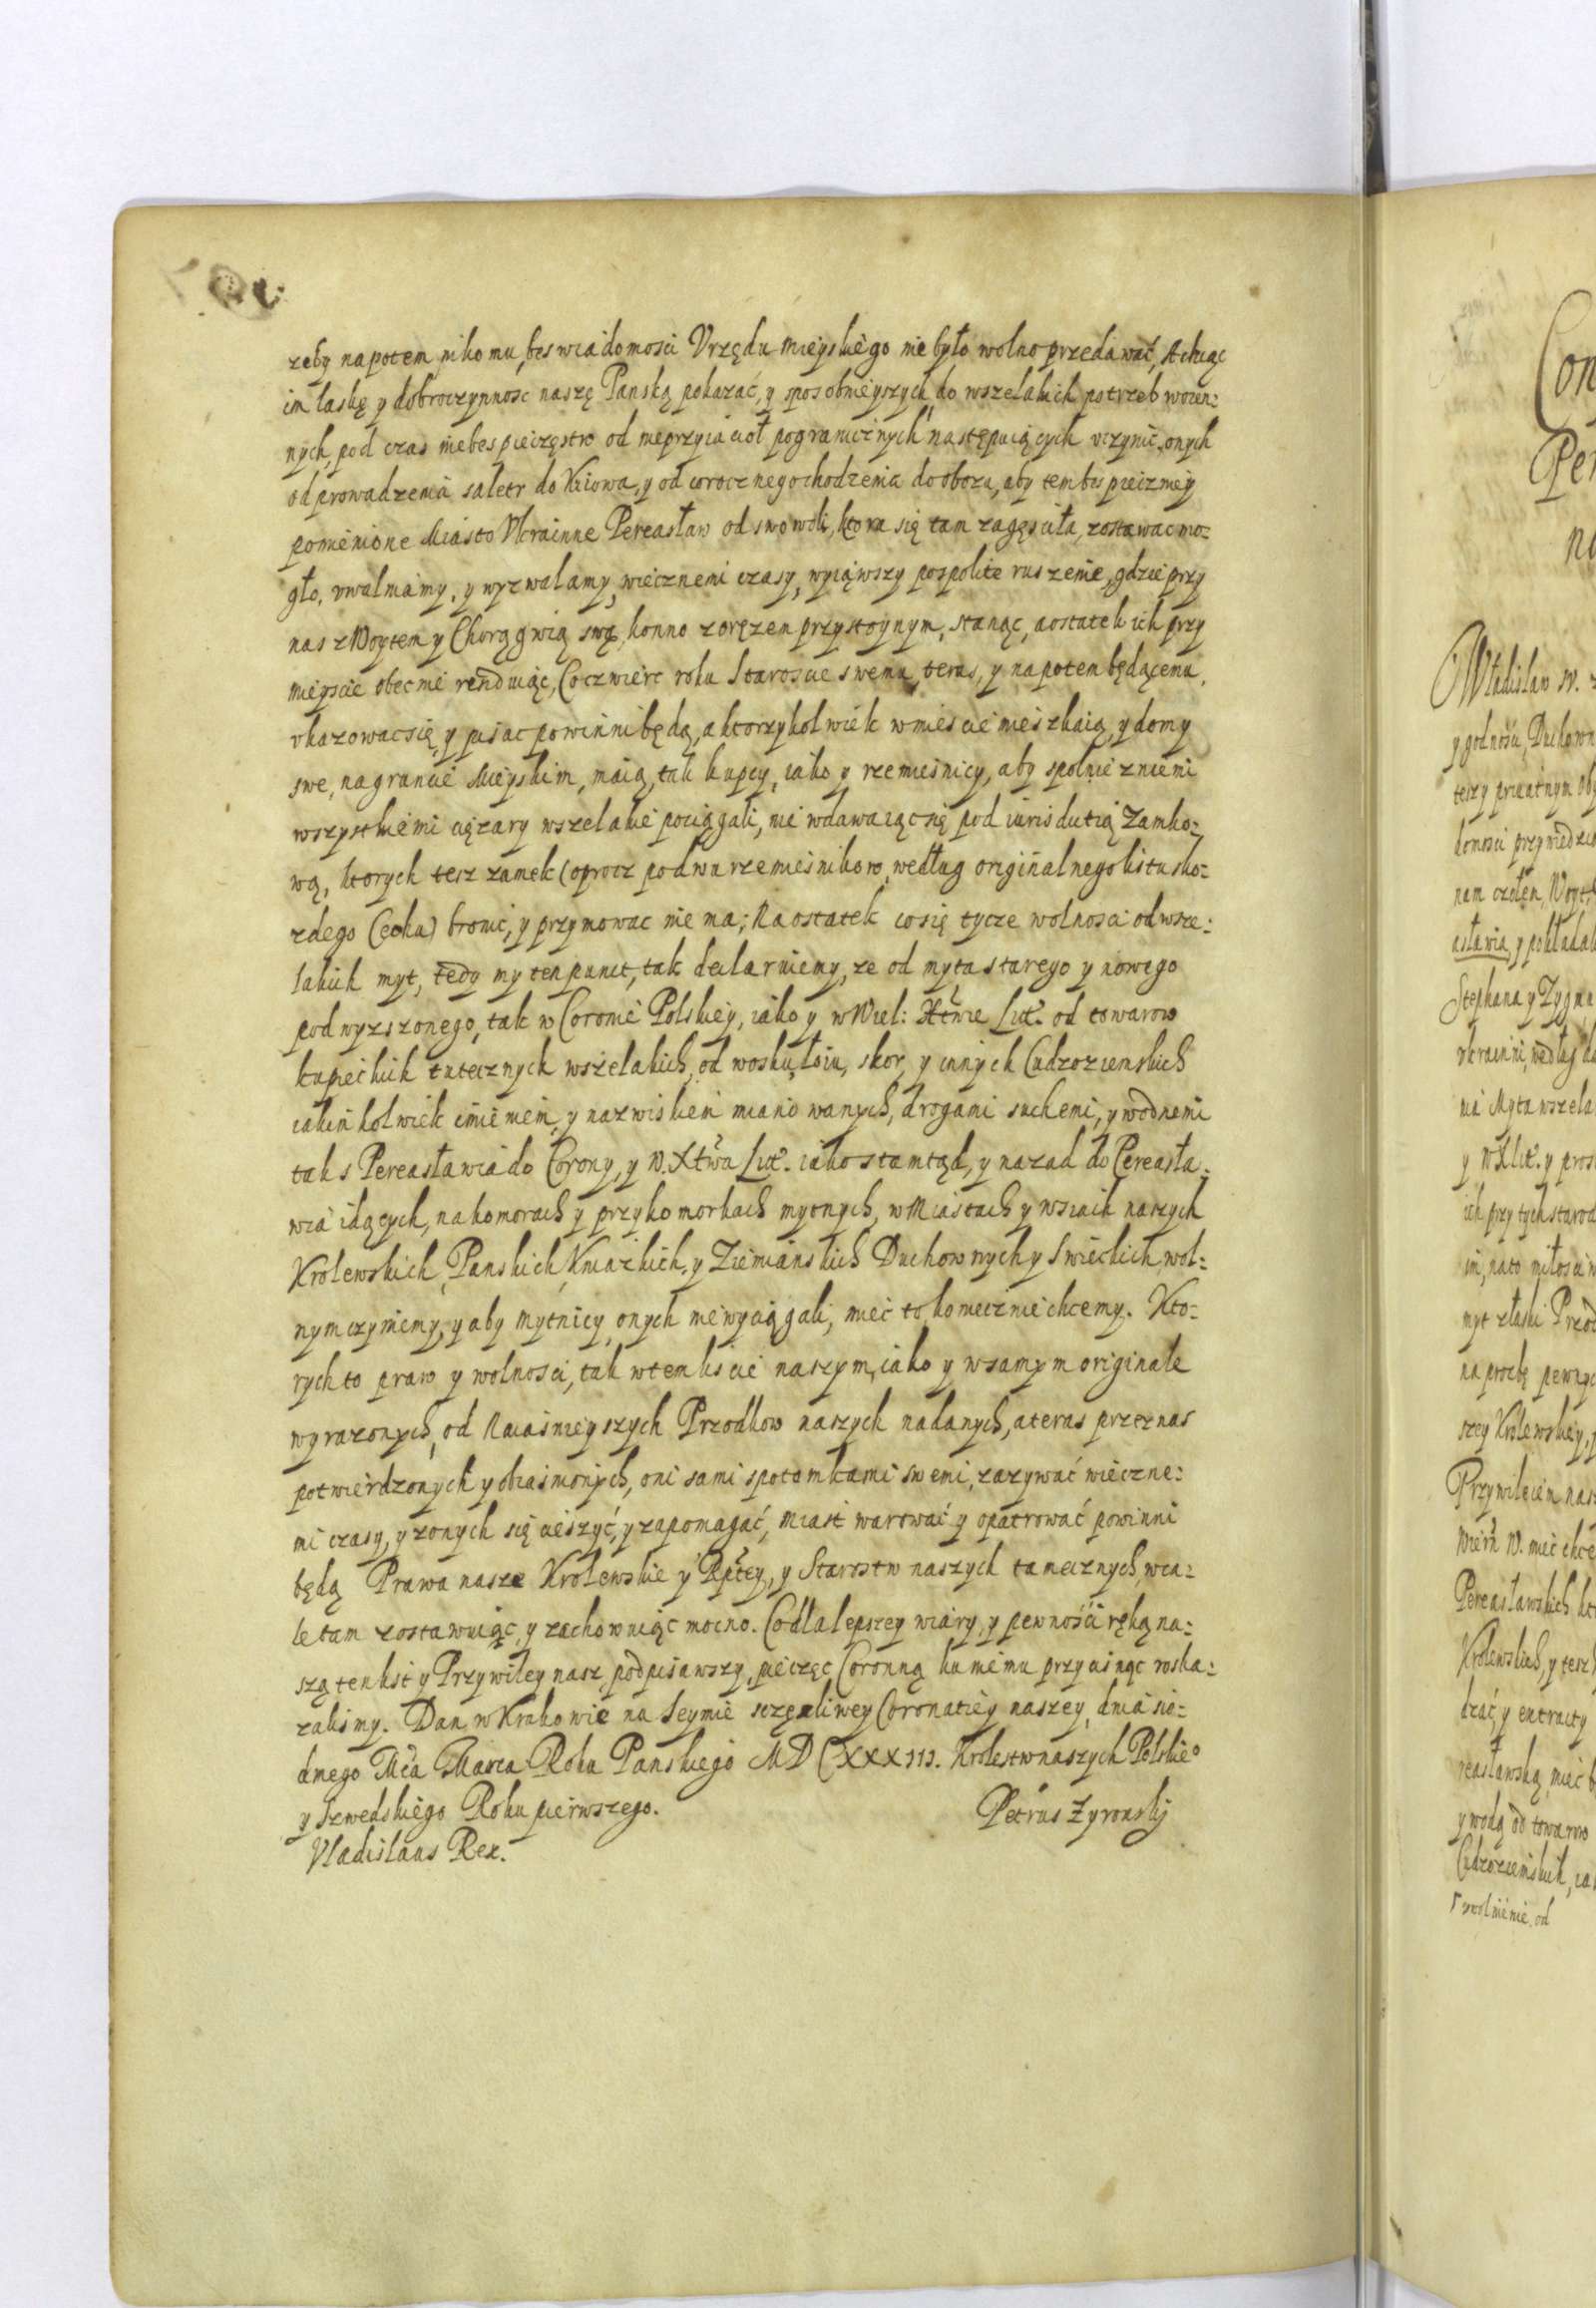 zeby napotem nikomu, bes wiadomosci Vrzędu Mieyskiego nie było wolno przedawać, A chcąc
im łaskę y dobroczynnosc naszę Panską pokazać, y sposobnieyszych do wszelakich potrzeb woien:
nych, pod czas niebespieczęstw od nieprzyiacioł pogranicznych następuiących vczynic, onych
od prowadzenia saletr do Kiiowa, y od corocznego chodzenia do obozu, aby tem bespieczniey
pomienione Miasto Vkrainne Pereasław od swowoli, ktora się tam zagęsciła, zostawac mo:
gło, vwalniamy, y wyzwalamy, wiecznemi czasy, wyiąwszy pospolite ruszenie, gdzie przy
nas z Woytem y Chorągwią swą, konno z oręzem przystoynym, stanąc, a ostatek ich przy
mieyscie obecnie renduiąc, Co czwierc roku Staroscie swemu, teras, y napotem będącemu,
vkazowac się y pisac powinni będą, a ktorzykolwiek w miescie mieszkaią, y domy
swe, na gruncie Mieyskim, maią, tak kupcy, iako y rzemiesnicy, aby spolnie z niemi
wszystkiemi ciężary wszelakie pociągali, nie wdawaiąc się pod iurisdictią Zamko:
wą, ktorych tesz zamek (oprocz po dwu rzemiesnikow, według originalnego listu s ko:
zdego Cechu) bronic, y przymowac nie ma; Na ostatek co się tycze wolnosci od wsze:
lakich myt, tedy my ten punct, tak declaruiemy, ze od myta starego y nowego
podwyzszonego, tak w Coronie Polskiey, iako y w Wiel: Xtwie Lit. od towarow
kupieckich tutecznych wszelakich, od wosku, łoiu, skor, y innych Cudzoziemskich
iakimkolwiek imieniem, y nazwiskiem mianowanych, drogami suchemi, y wodnemi
tak s Pereasławia do Corony, y W. Xtwa Lit. iako stamtąd, y nazad do Pereasła:
wia idących, na komorach y przykomorkach mytnych, w Miastach y wsiach naszych
Krolewskich, Panskich, Kniazkich, y Ziemianskich Duchownych y Swieckich, wol:
nym czyniemy, y aby Mytnicy onych nie wyciągali, miec to koniecznie chcemy. Kto:
rych to praw y wolnosci, tak w tem liscie naszym, iako y w samym originale
wyrazonych, od Naiasnieyszych Przodkow naszych nadanych, a teras przez nas
potwierdzonych y obiasnionych, oni sami s potomkami swemi, zazywać wieczne:
mi czasy, y z onych się cieszyć, y zapomagać, Miast warować y opatrować powinni
będą Prawa nasze Krolewskie y Rptey, y Starostw naszych tamecznych, wca:
le tam zostawuiąc, y zachowuiąc mocno. Co dla lepszey wiary, y pewnosci ręką na:
szą ten list y Przywiley nasz, podpisawszy, pieczęc Coronną ku niemu przycisnąc roska:
zalismy. Dan w Krakowie na Seymie sczęsliwey Coronatiey naszey, dnia sio:
dmego Mca Marca Roku Panskiego MDCXXXIII. Krolestw naszych Polskieo
y Szwedskiego Roku pierwszego.
Petrus Zyronskij
Vladislaus Rex.
Con
Per
Władislaw IV. z
y godnosci, Duchown
tesz y priuatnym oby
nam czołem, Woyt,
asławia, y pokładali
Stephana y Zygmu
nia Myta wszela
y W X Lit. y pros
ich przy tych starod
myt z łaski Przod
na prozbę pewnyc
szey Krolewskiey, p
Przywileiem nas
Wiern W. miec chce
Pereasławskich kto
Krolewskich, y tesz
dzać, y extracty
reasławską, miec b
y wodą od towarow
Cudzoziemskich, ia
vwolnienie od